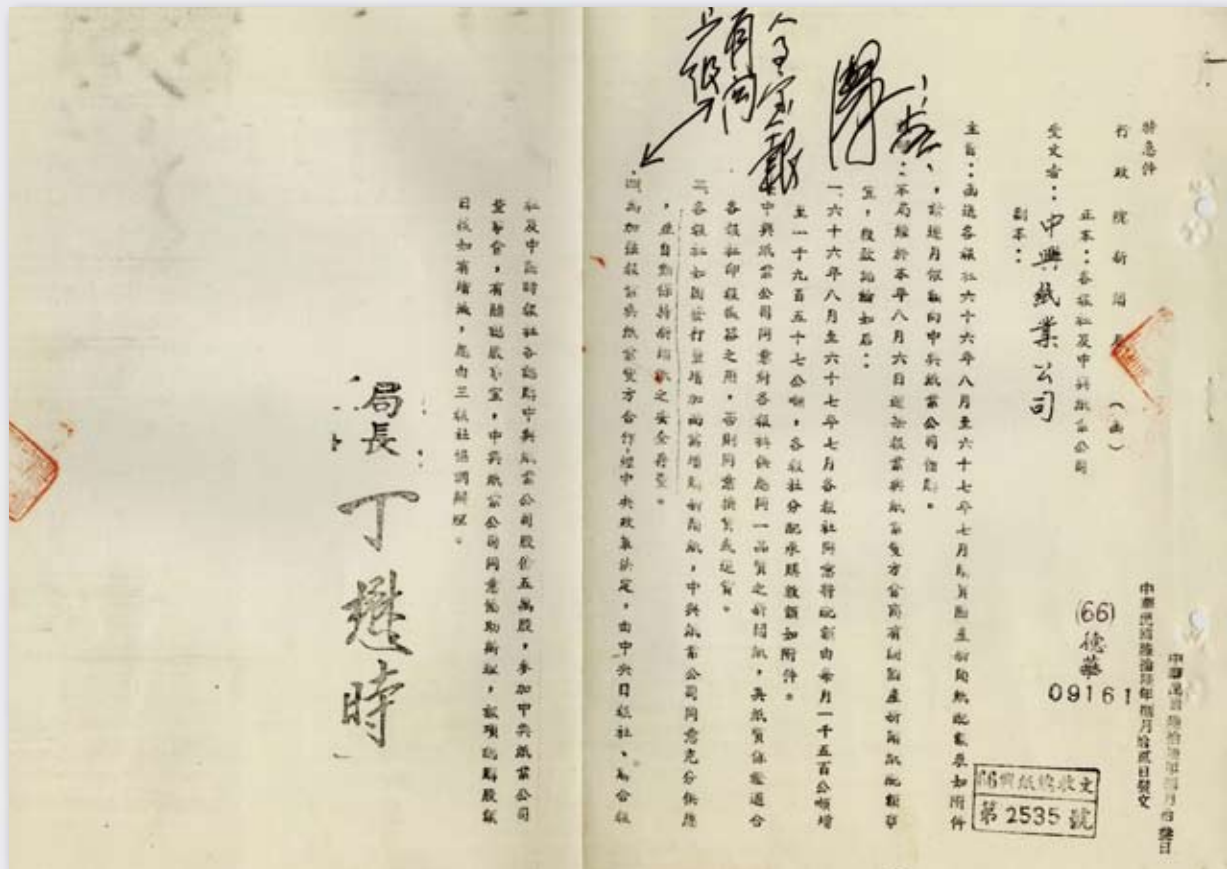 特急件
行政院新聞局（函）
正本：各報社及中興紙業公司
受文者：中興紙業公司
副本：
中華民國陸拾陸年捌月拾貳日發文
(66)
德華
09161
66興紙總收文
第2535號
主旨：函送各報社六十六年八月至六十七年七月購買國產新聞紙配額表如附件
，請逐月依額向中興紙業公司價購。
：本局經於本年八月六日邀集報業與紙業雙方會商有關國產新聞紙配額事
宜，獲致結論如后：
一、六十六年八月至六十七年七月各報社同意將配額由每月一千五百公噸增
至一千九百五十七公噸，各報社分配承購數額如附件。
中興紙業公司同意對各報社供應同一品質之新聞紙，其紙質保證適合
各報社印報機器之用，否則同意換貨或退貨。
三、各報社如因發行量增加而需增購新聞紙，中興紙業公司同意充分供應
，並自動保持新聞紙之安全存量。
四、為加強報業與紙業雙方合作，經中央政策決定，由中央日報社、聯合報
社及中國時報社各認購中興紙業公司股份五萬股，參加中興紙業公司
董事會，有關認股事宜，中興紙業公司同意協助辦理，該項認購股額
日後如有增減，應由三報社協調辦理。
局長 丁懋時